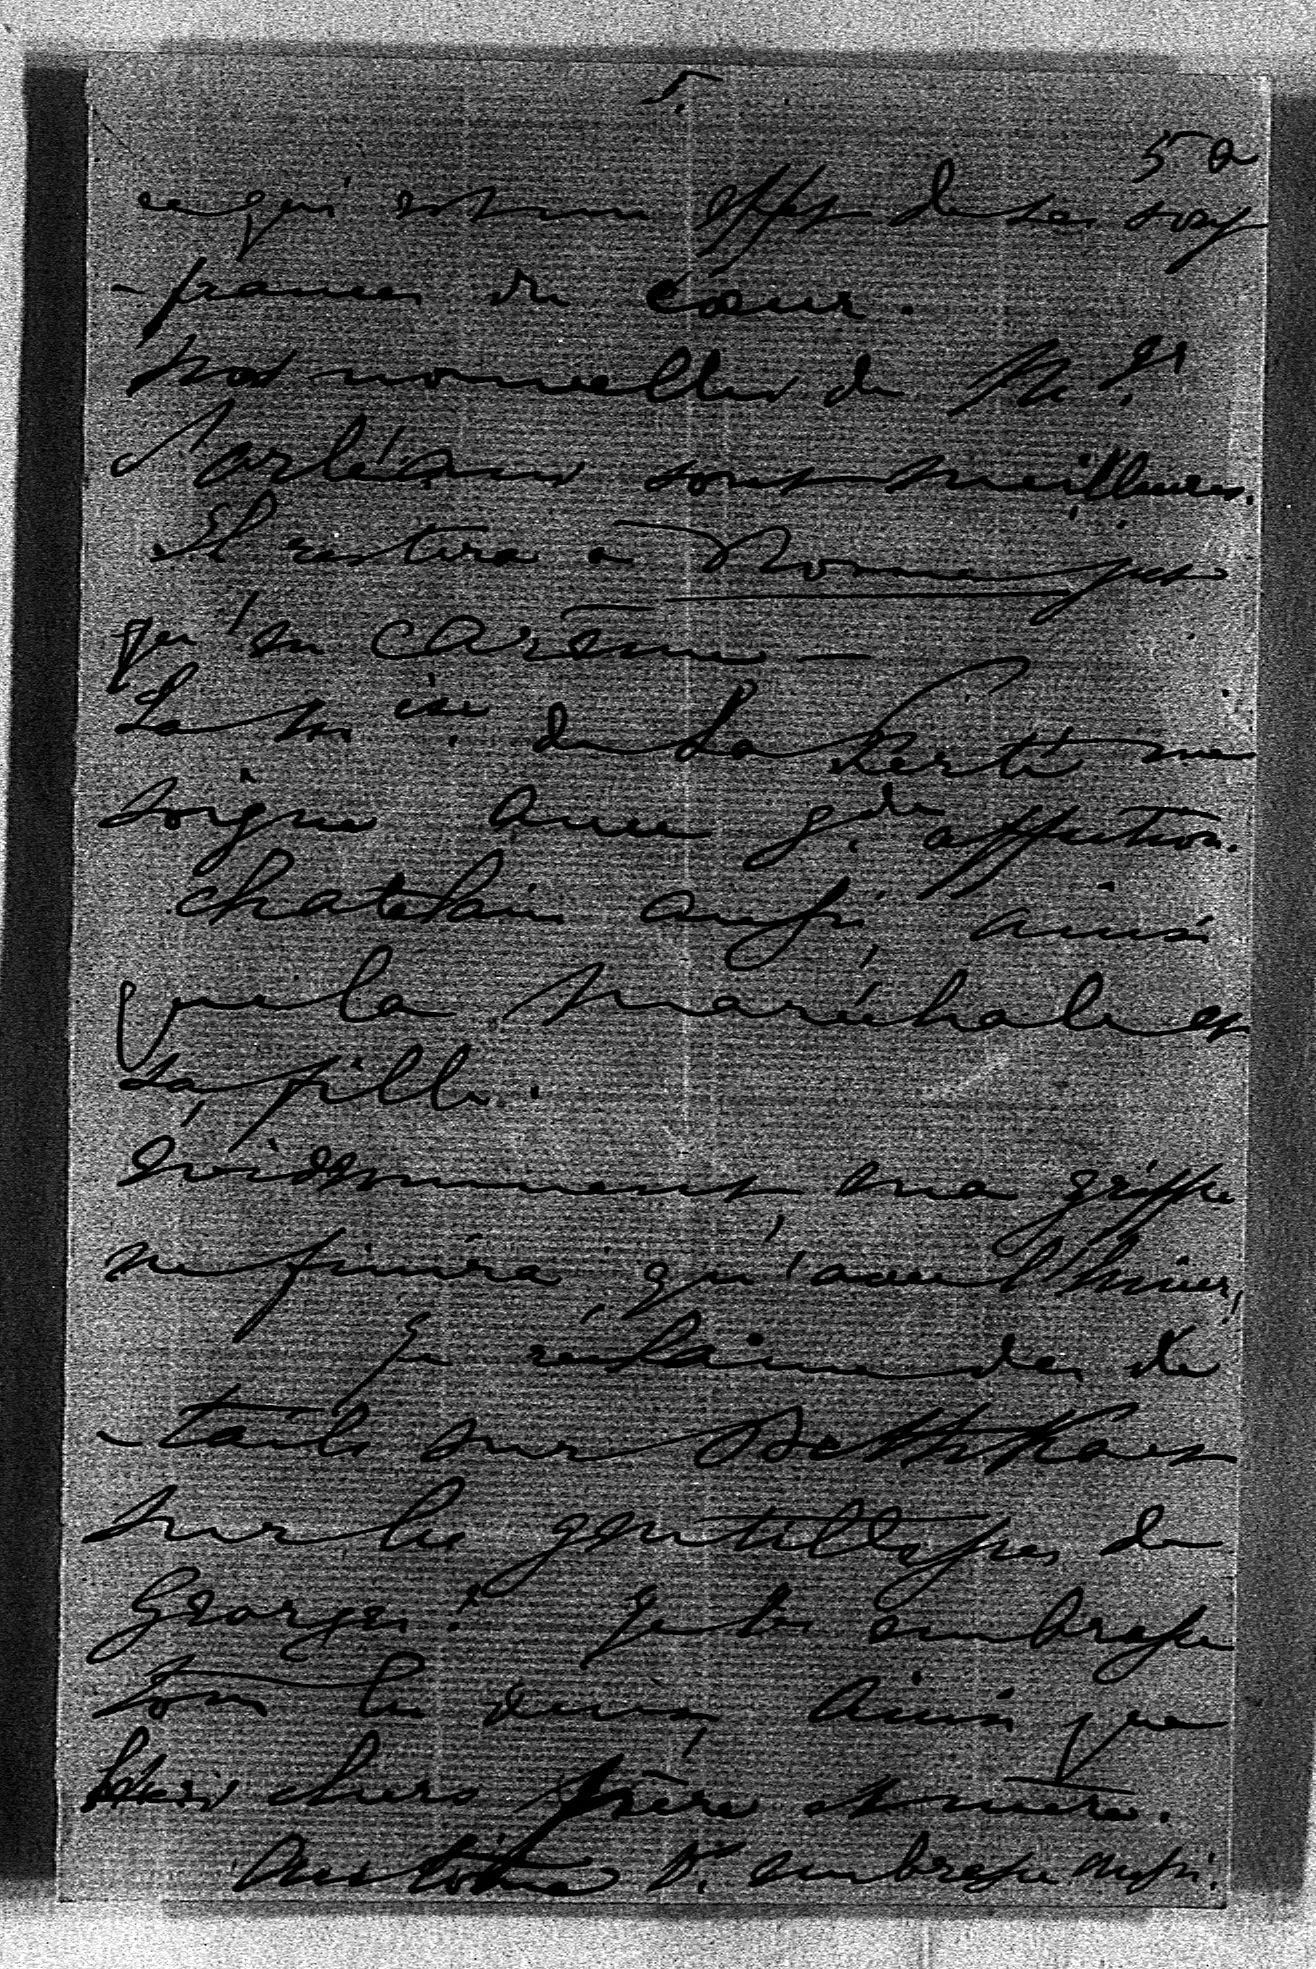 5.
5 a
ce qui est un effet de ses souf
-frances du cœur.
Nos nouvelles de M.gr
d'orléans sont meilleures.
Il restera a Rome jus
qu'en carême —
La M.ise de La Ferté me
soigne avec g.de affection.
chatelain aussi, ainsi
que la Maréchale et
sa fille.
Evidemment ma grippe
ne finira qu'avec l'hiver,
Je réclame des dé
-tails sur et
sur les gentillesses de
Georges! Je les embrasse
tous les deux, ainsi que
chers père et mère.
V. embrasse aussi.